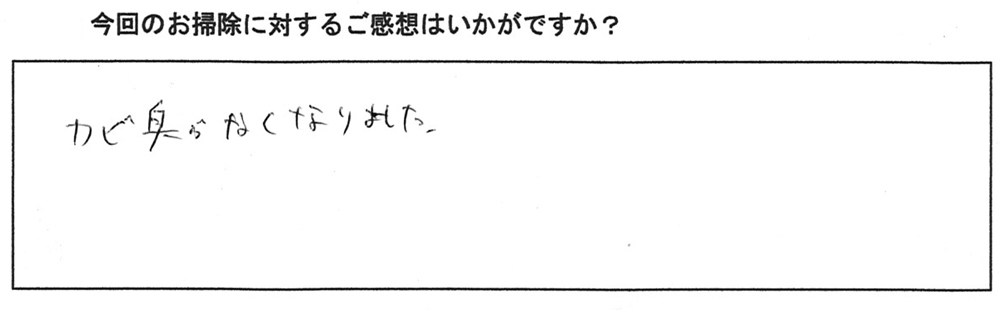 今回のお掃除に対するご感想はいかがですか？
カビ臭がなくなりました。